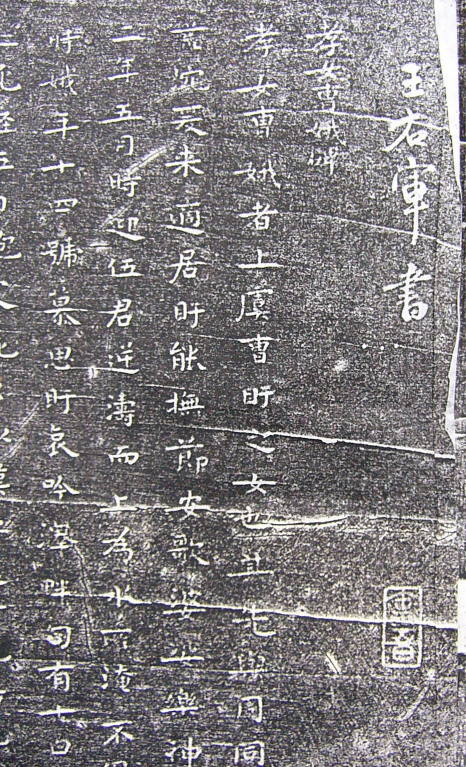 王右軍書
孝女曹娥碑
孝女曹娥者上虞曹盱之女也其先與周同
荒流來適居盱能撫節安歌婆娑樂神
二年五月時迎伍君逆濤而上為水所淹不
時娥年十四號慕思盱哀吟澤畔旬有七日